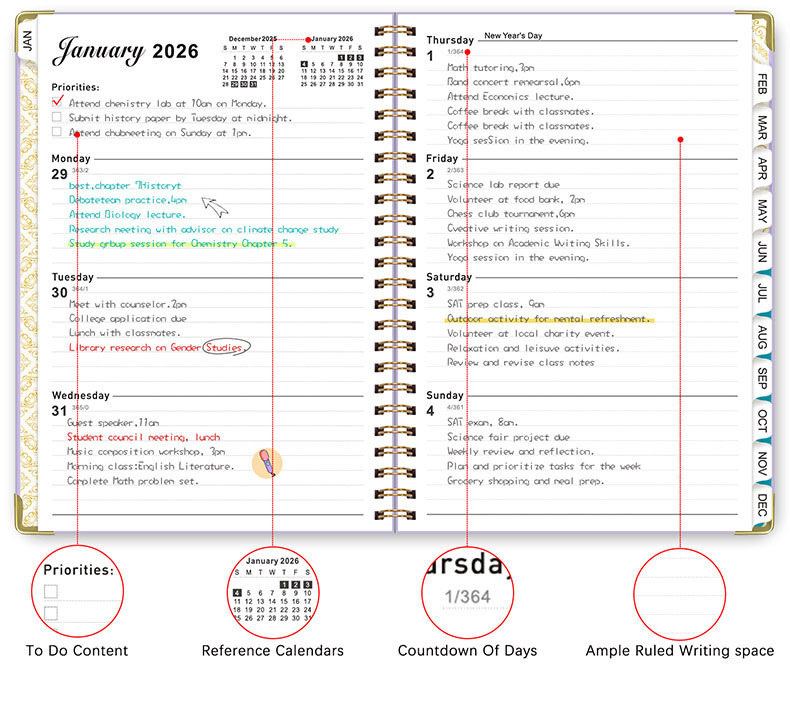 JAN
January 2026
December 2025
S M T W T F S
1 2 3 4 5 6
7 8 9 10 11 12 13
14 15 16 17 18 19 20
21 22 23 24 25 26 27
28 29 30 31
January 2026
S M T W T F S
1 2 3
4 5 6 7 8 9 10
11 12 13 14 15 16 17
18 19 20 21 22 23 24
25 26 27 28 29 30 31
Priorities:
Attend chemistry lab at 10am on Monday.
Submit history paper by Tuesday at midnight.
Attend chubmeeting on Sunday at 1pm.
Monday
29 363/2
best,chapter 7Historyt
Debateteam practice,4pm
Attend Biology lecture.
Research meeting with advisor on climate change study
Study grbup session for Chemistry Chapter 5.
Tuesday
30 364/1
Meet with counselor.2pm
College application due
Lunch with classmates.
Library research on Gender Studies.
Wednesday
31 365/0
Guest speaker,11am
Student council meeting, lunch
Music composition workshop, 3pm
Morning class:English Literature.
Complete Math problem set.
Thursday New Year's Day
1 1/364
Math tutoring,3pm
Band concert rehearsal,6pm
Attend Economics lecture.
Coffee break with classmates.
Coffee break with classmates.
Yoga sesSion in the evening.
Friday
2 2/363
Science lab report due
Volunteer at food bank, 2pm
Chess club tournament,6pm
Cveative writing session.
Workshop on Academic Wviting Skills.
Yoga session in the evening.
Saturday
3 3/362
SAT prep class, 9am
Outdoor activity for mental refreshment.
Volunteer at local charity event.
Relaxation and leisuve activities.
Review and revise class notes
Sunday
4 4/361
SAT exam, 8am.
Science fair project due
Weekly review and reflection.
Plan and prioritize tasks for the week
Grocery shopping and meal prep.
FEB
MAR
APR
MAY
JUN
JUL
AUG
SEP
OCT
NOV
DEC
Priorities:
To Do Content
January 2026
S M T W T F S
1 2 3
4 5 6 7 8 9 10
11 12 13 14 15 16 17
18 19 20 21 22 23 24
25 26 27 28 29 30 31
Reference Calendars
ursday
1/364
Countdown Of Days
Ample Ruled Writing space